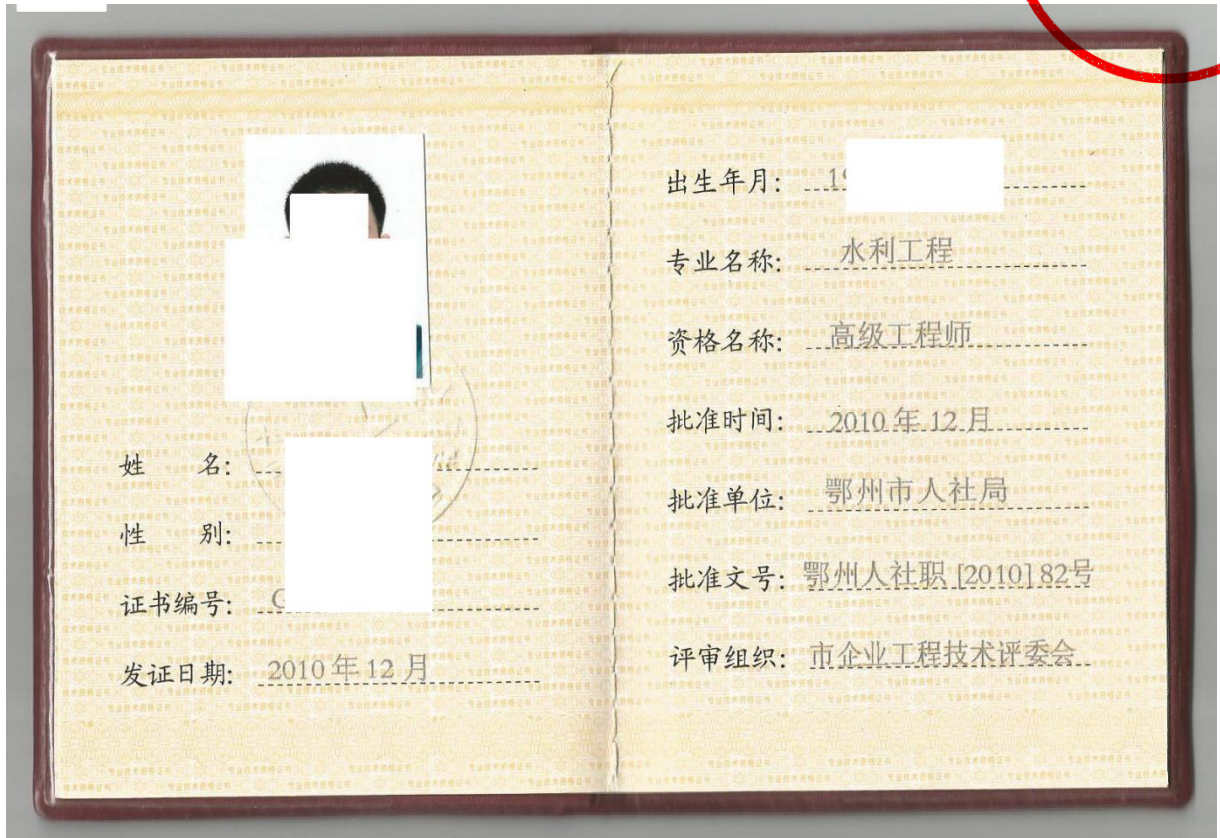 姓 名:
性 别:
证书编号: G
发证日期: 2010年12月
出生年月: 19
专业名称: 水利工程
资格名称: 高级工程师
批准时间: 2010年12月
批准单位: 鄂州市人社局
批准文号: 鄂州人社职[2010]82号
评审组织: 市企业工程技术评委会